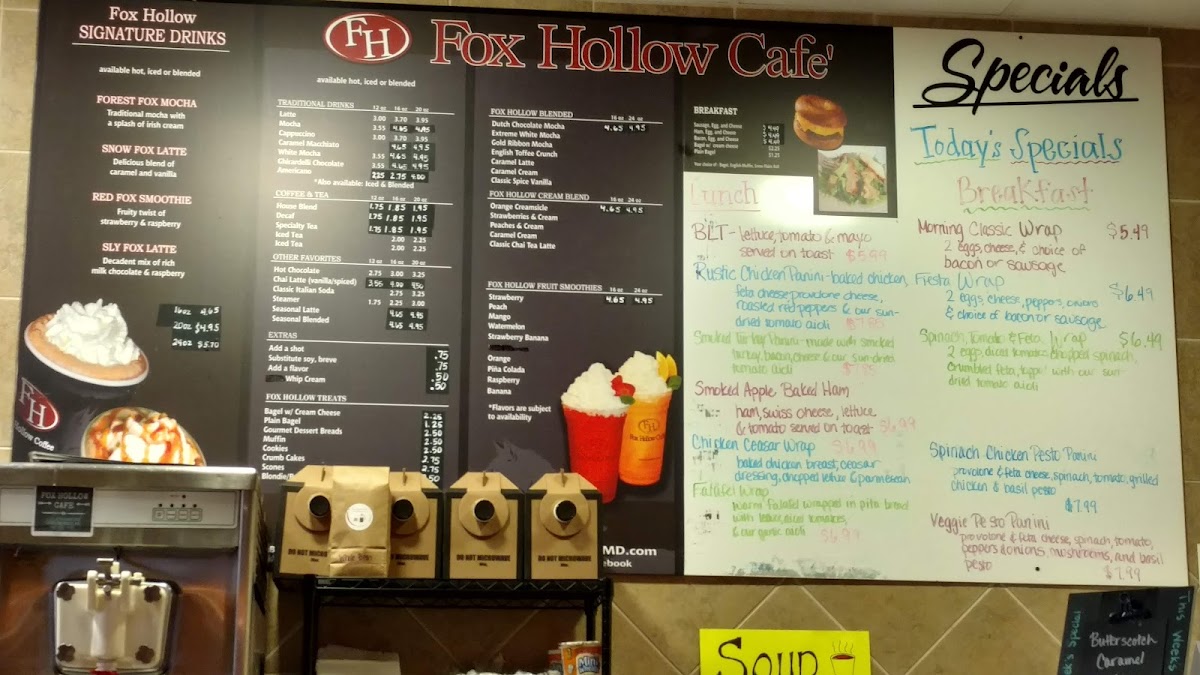 Fox Hollow
SIGNATURE DRINKS
available hot, iced or blended
FOREST FOX MOCHA
Traditional mocha with
a splash of irish cream
SNOW FOX LATTE
Delicious blend of
caramel and vanilla
RED FOX SMOOTHIE
Fruity twist of
strawberry & raspberry
SLY FOX LATTE
Decadent mix of rich
milk chocolate & raspberry
16oz 4.65
20oz $4.95
24oz $5.70
FH
Hollow Coffee
FOX HOLLOW
CAFE
FH Fox Hollow Cafe'
available hot, iced or blended
TRADITIONAL DRINKS 12 oz 16 oz 20 oz
Latte 3.00 3.70 3.95
Mocha 3.55 4.65 4.95
Cappuccino 3.00 3.70 3.95
Caramel Macchiato 4.65 4.95
White Mocha 3.55 4.65 4.95
Ghirardelli Chocolate 3.55 4.65 4.95
Americano 2.25 2.75 4.00
*Also available: Iced & Blended
COFFEE & TEA 12 oz 16 oz 20 oz
House Blend 1.75 1.85 1.95
Decaf 1.75 1.85 1.95
Specialty Tea 1.75 1.85 1.95
Iced Tea 2.00 2.25
Iced Tea 2.00 2.25
OTHER FAVORITES 12 oz 16 oz 20 oz
Hot Chocolate 2.75 3.00 3.25
Chai Latte (vanilla/spiced) 3.55 4.00
Classic Italian Soda 2.75 3.25
Steamer 1.75 2.25 3.00
Seasonal Latte 4.65 4.95
Seasonal Blended 4.65 4.95
EXTRAS
Add a shot .75
Substitute soy, breve .75
Add a flavor .50
Whip Cream .50
FOX HOLLOW TREATS
Bagel w/ Cream Cheese 2.25
Plain Bagel 1.25
Gourmet Dessert Breads 2.50
Muffin 2.50
Cookies 2.50
Crumb Cakes 2.75
Scones 2.75
Blondie/ .50
FOX HOLLOW BLENDED 16 oz 24 oz
Dutch Chocolate Mocha 4.65 4.95
Extreme White Mocha
Gold Ribbon Mocha
English Toffee Crunch
Caramel Latte
Caramel Cream
Classic Spice Vanilla
FOX HOLLOW CREAM BLEND 16 oz 24 oz
Orange Creamsicle 4.65 4.95
Strawberries & Cream
Peaches & Cream
Caramel Cream
Classic Chai Tea Latte
FOX HOLLOW FRUIT SMOOTHIES 16 oz 24 oz
Strawberry 4.65 4.95
Peach
Mango
Watermelon
Strawberry Banana
Orange
Piña Colada
Raspberry
Banana
*Flavors are subject
to availability
FH
Fox Hollow Coffee
DO NOT MICROWAVE
DO NOT MICROWAVE
DO NOT MICROWAVE
DO NOT MICROWAVE
MD.com
ebook
BREAKFAST
Sausage, Egg, and Cheese
Ham, Egg, and Cheese
Bacon, Egg, and Cheese
Bagel w/ cream cheese $2.25
Plain Bagel $1.25
Lunch
BLT - lettuce, tomato & mayo
served on toast $5.99
Rustic Chicken Panini - baked chicken,
feta cheese provolone cheese,
roasted red peppers & our sun-
dried tomato aioli $7.85
Smoked Turkey Panini - made with smoked
turkey, bacon, cheese & our sun-dried
tomato aioli $7.85
Smoked Apple Baked Ham
ham, swiss cheese, lettuce
& tomato served on toast $6.99
Chicken Ceasar Wrap $6.99
baked chicken breast, ceasar
dressing, chopped lettuce & parmesean
Falafel Wrap
warm Falafel wrapped in pita bread
with lettuce, diced tomatoes,
& our garlic aioli $6.99
Specials
Today's Specials
Breakfast
Morning Classic Wrap $5.49
2 eggs, cheese, & choice of
bacon or sausage
Fiesta Wrap $6.49
2 eggs, cheese, peppers, onions
& choice of bacon or sausage
Spinach, Tomato & Feta Wrap $6.49
2 eggs, diced tomatoes, chopped spinach,
crumbled feta, topped with our sun-
dried tomato aioli
Spinach Chicken Pesto Panini
provolone & feta cheese, spinach, tomato, grilled
chicken & basil pesto
$7.99
Veggie Pesto Panini
provolone & feta cheese, spinach, tomato,
peppers & onions, mushrooms, and basil
pesto $7.99
Soup
This Week's
ek's Special
Butterscotch
Caramel